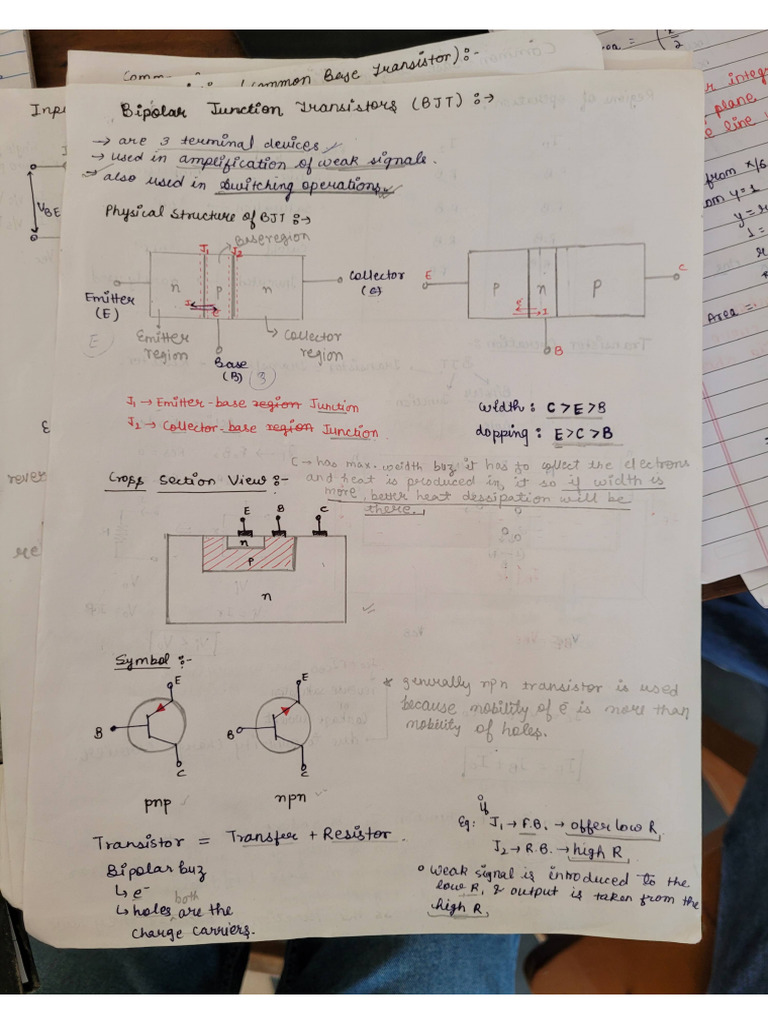 (Common Base Transistor):-
Bipolar Junction Transistors (BJT) :→
→ are 3 terminal devices
→ used in amplification of weak signals.
→ also used in switching operations
Physical Structure of BJT :→
J1 Base region J2
n p n
Emitter (E)
Collector (C)
Emitter region
Collector region
Base (B)
3
E
E C
p n p
B
J1 → Emitter-base region Junction
J2 → Collector-base region Junction
width: C>E>B
dopping: E>C>B
C → has max. width buz it has to collect the electrons
and heat is produced in it so if width is
more, better heat dessipation will be
there.
Cross Section View :-
E B C
n
p
n
Symbol :-
E
B
C
pnp
E
B
C
npn
* generally npn transistor is used
because mobility of e is more than
mobility of holes.
Transistor = Transfer + Resistor.
Bipolar buz
↳ e-
both
↳ holes are the
charge carriers.
if
Eg: J1 → F.B. → offer low R
J2 → R.B. → high R
° weak signal is introduced to the
low R, & output is taken from the
high R
Inpu
VBE
rever
re
r integr
plane
e line
from x/s
y=1
1=
Area =